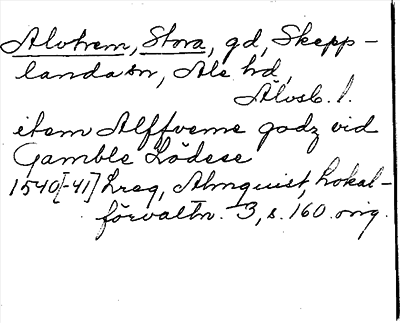 Alvhem, Stora, gd, Skepp-
landa sn, Ale hd,
Älvsb. l.
item Alffveme godz vid
Gamble Lödese
1540[-41] Lreg, Almquist, Lokal-
förvaltn. 3, s. 160. orig.